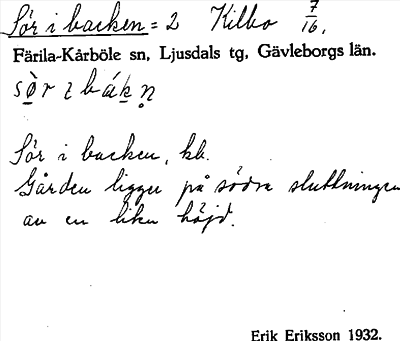 Sör i backen = 2 Kilbo 7/16.
Färila-Kårböle sn, Ljusdals tg, Gävleborgs län.
sò̤r i bák̠n̥
Sör i backen, kb.
Gården ligger på södra sluttningen
av en liten höjd.
Erik Eriksson 1932.